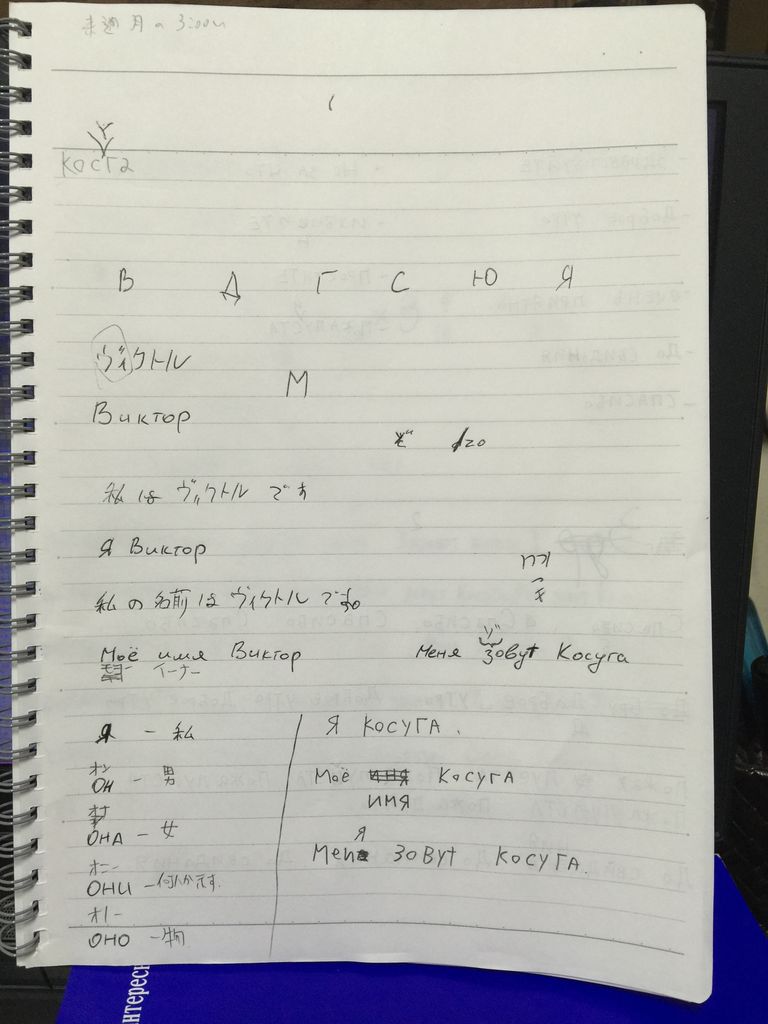 来週 月の 3:00
у
КОСГА
В Д Г С Ю Я
ヴィクトル
М
Виктор
私は ヴィクトル です
Я Виктор
私の名前は ヴィクトル です
Моё имя Виктор
イーナー
Меня зовут Косуга
Я — 私
Я КОСУГА.
オン
ОН — 男
Моё КОСУГА
ИМЯ
ОНА — 女
Я
Мен ЗОВУТ КОСУГА.
オニー
ОНИ —
オノー
ОНО — 物
нтерес